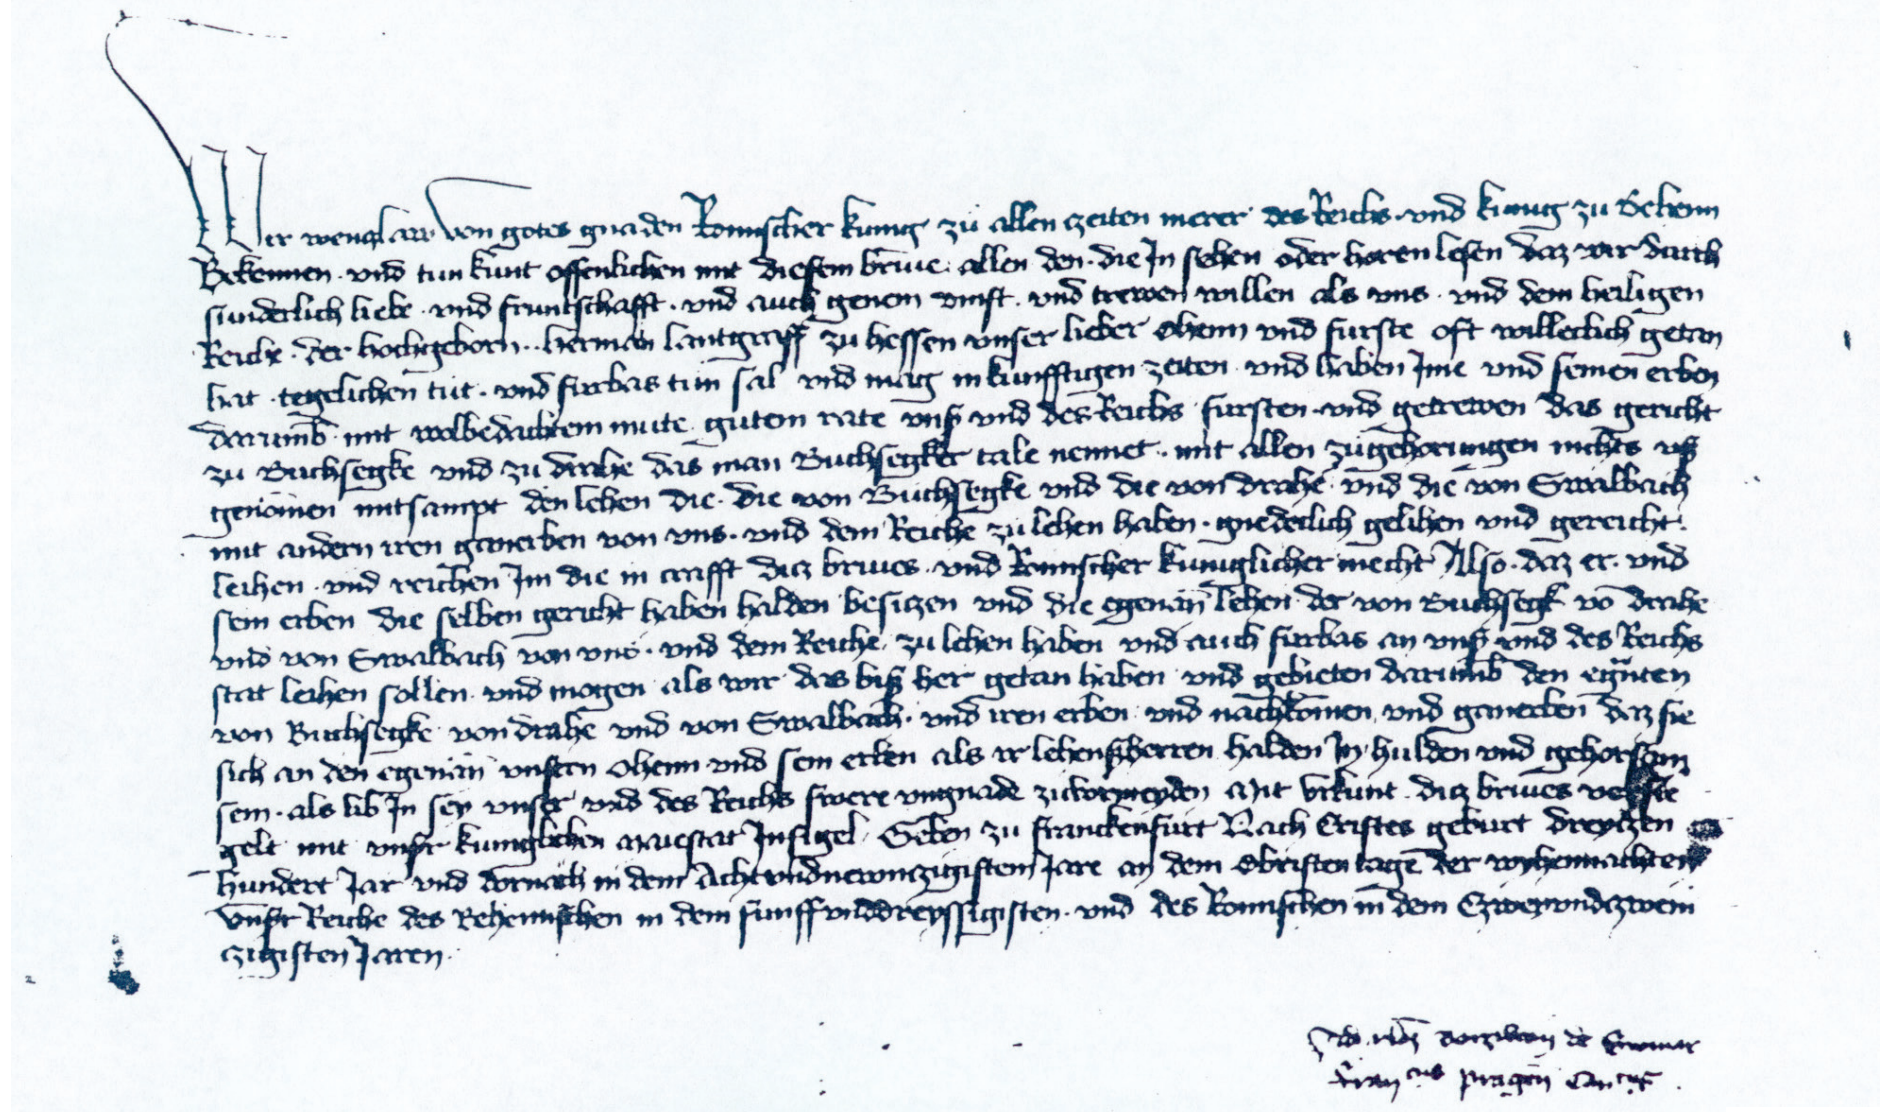 Wir wenczlaw von gotes gnaden Romischer kunig zu allen zeiten merer des Reichs und kunig zu Behem
Bekennen und tun kunt offenlichen mit diesem brive allen den die In sehen oder horen lesen daz wir durch
sunderlich liebe und fruntschafft und auch genem und trewen willen als uns und dem heiligen
Reiche der hochgeborn herman lantgraff zu hessen unser lieber Ohem und furste oft willeclich getan
hat tegelichen tut und furbas tun sal und mag in kunfftigen zeiten und haben Ime und seinen erben
darumb mit wolbedachtem mute gutem rate unß und des Reichs fursten und getrewen das gericht
zu Buchsegke und zu drahe das man Buchsegker tale nennet mit allen zugehorungen nichts uß
genomen mitsampt den lehen die die von Buchsegke und die von drahe und die von Swalbach
mit andern iren ganerben von uns und dem Reiche zu lehen haben gnedeclich gelihen und gereicht
leihen und reichen Im die in crafft dicz brives und Romischer kuniglicher mecht Also daz er und
sein erben die selben gericht haben halden besiczen und die egenan lehen der von Buchsegk vo drahe
und von Swalbach von uns und dem Reiche zu lehen haben und auch furbas an unß und des Reichs
stat leihen sollen und mogen als wir das biß her getan haben und gebieten darumb den egnten
von Buchsegke von drahe und von Swalbach und iren erben und nachkomen und ganerben daz sie
sich an den egenan unsern Ohem und sein erben als ir lehensherren halden In hulden und gehorsam
sein als lib In sey unser und des Reichs swere ungnade zuvormeyden Mit urkunt dicz brives versie
gelt mit unsr kuniglichen maiestat Insigel Geben zu franckenfurt Nach Cristes geburt dreyczen
hundert Jar und dornach in dem Achtundnewnczigistem Jare an dem Obristen tage der wyhennachten
unsr Reiche des Behemischen in dem funffunddreyssigisten und des Romischen in dem Czweyundczwein
czigisten Jaren
de
Franciscus pragen Canc